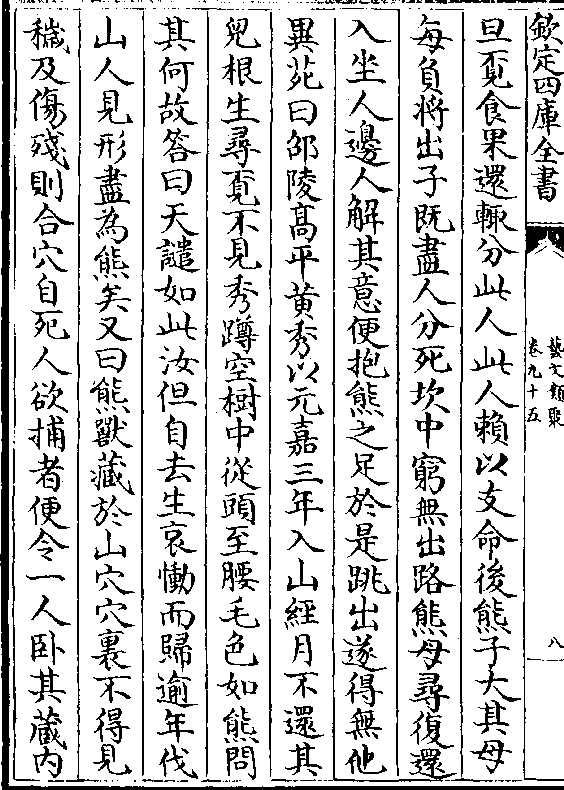 欽定四庫全書
藝文類聚
卷九十五
八
旦覔食果還輙分此人此人賴以支命後熊子大其母
每負将出子既盡人分死坎中窮無出路熊母尋復還
入坐人邊人解其意便抱熊之足於是跳出遂得無他
異苑曰邵陵髙平黄秀以元嘉三年入山經月不還其
兒根生尋覔不見秀蹲空樹中從頭至腰毛色如熊問
其何故答曰天譴如此汝但自去生哀慟而歸逾年伐
山人見形盡為熊矣又曰熊獸藏於山穴穴裏不得見
穢及傷殘則合穴自死人欲捕者便令一人卧其藏内